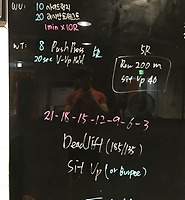 WU: 10
20
1min x 10R
WT: 8 Push Press
20sec V-Up Hold
5R
5R
Row 200 m
Sit Up 40
21-18-15-12-9-6-3
Deadlift (185/135)
Sit Up (or Burpee)